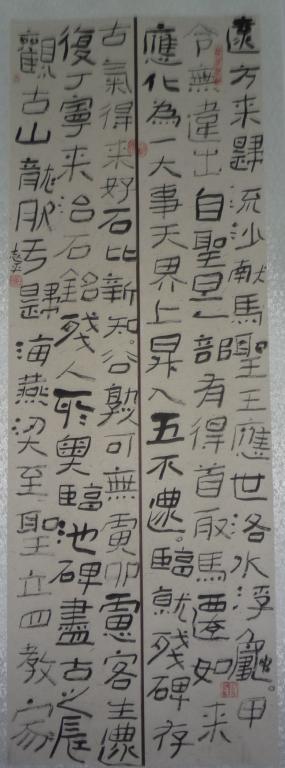 遠方来歸流沙献馬聖王應世洛水浮龜。甲
令無違出自聖旦一部有得首取馬遷如来
應化為一大事天界上昇入五不還。臨就殘碑存
古氣得来好石比新知。公孰可無寅卯慮客生還
復丁寧来台石銘殘人取奥臨池碑盡古之辰
觀古山龍服弓歸海燕洪至聖立四教家